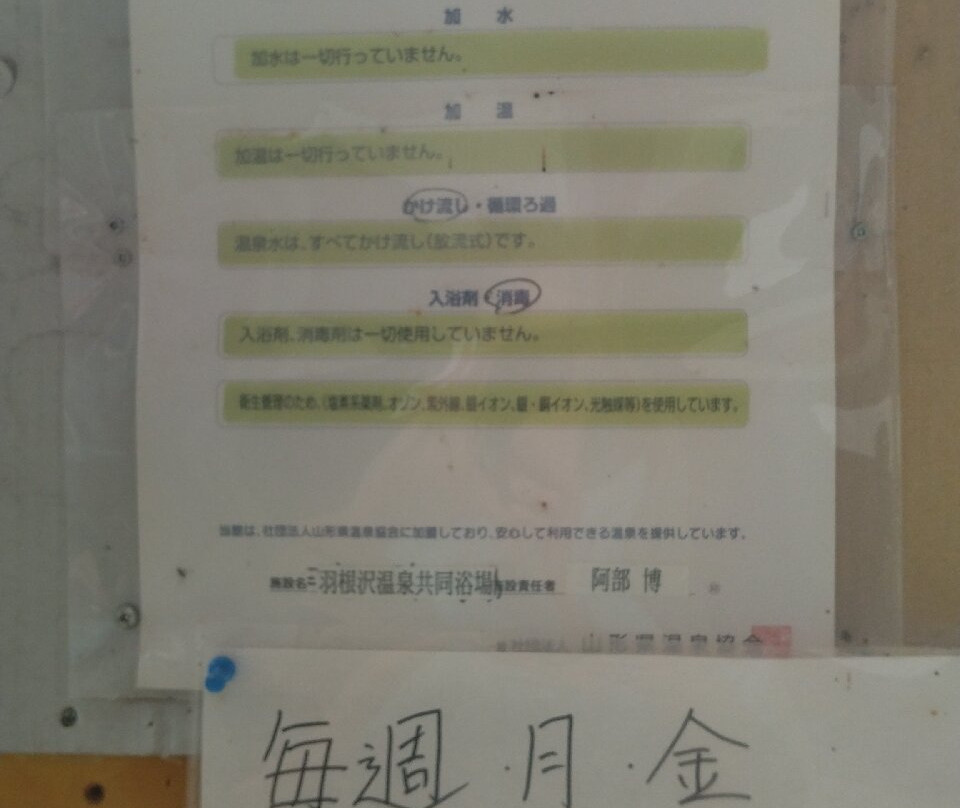 加 水
加水は一切行っていません。
加 温
加温は一切行っていません。
かけ流し・循環ろ過
温泉水は、すべてかけ流し(放流式)です。
入浴剤・消毒
入浴剤、消毒剤は一切使用していません。
衛生管理のため、(塩素系薬剤、オゾン、紫外線、銀イオン、銀・銅イオン、光触媒等)を使用しています。
当館は、社団法人山形県温泉協会に加盟しており、安心して利用できる温泉を提供しています。
施設名 羽根沢温泉共同浴場 施設責任者 阿部 博 ㊞
社団法人 山形県温泉協会
毎週・月・金